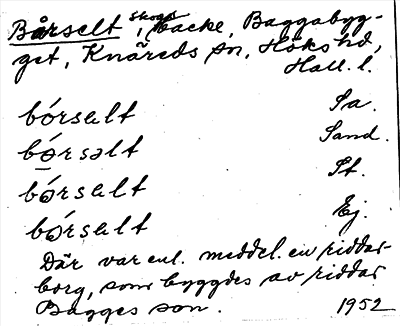 Bårselt, skogsbacke, Baggabyg-
get, Knäreds sn, Höks hd,
Hall. l.
bórsalt Sa.
bo̱rsalt Sand.
bórsalt St.
bórsalt Ej.
Där var enl. meddel. en riddar-
borg, som byggdes av riddar
Bagges son. 1952